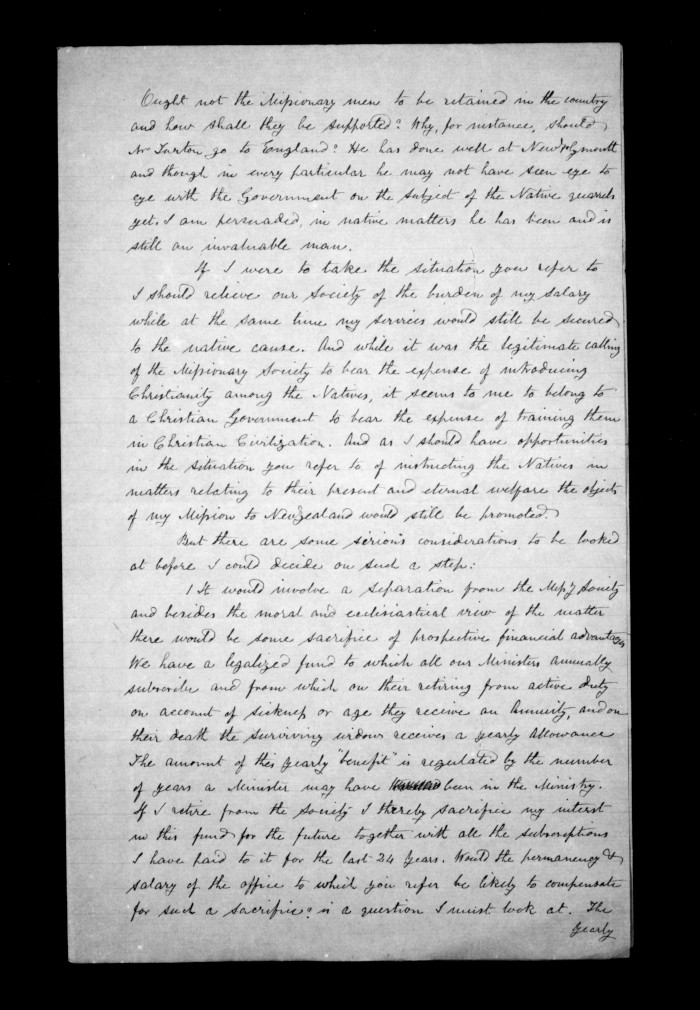 Ought not the Missionary men to be retained in the country
and how shall they be supported? Why, for instance, should
Mr Turton go to England? He has done well at New Plymouth
and though in every particular he may not have seen eye to
eye with the Government on the subject of the Native quarrels
yet, I am persuaded, in native matters he has been and is
still an invaluable man.
If I were to take the situation you refer to
I should relieve our Society of the burden of my salary
while at the same time my services would still be secured
to the native cause. And while it was the legitimate calling
of the Missionary Society to bear the expense of introducing
Christianity among the Natives, it seems to me to belong to
a Christian Government to bear the expense of training them
in Christian Civilization. And as I should have opportunities
in the situation you refer to of instructing the Natives in
matters relating to their present and eternal welfare the objects
of my Mission to New Zealand would still be promoted.
But there are some serious considerations to be looked
at before I could decide on such a step:
1 It would involve a separation from the Missy Society
and besides the moral and ecclesiastical view of the matter
there would be some sacrifice of prospective financial advantages
We have a legalized fund to which all our Ministers annually
subscribe and from which on their retiring from active duty
on account of sickness or age they receive an Annuity, and on
their death the surviving widows receives a yearly allowance
The amount of this yearly "benefit" is regulated by the number
of years a Minister may have been in the Ministry.
If I retire from the Society I thereby sacrifice my interest
in this fund for the future together with all the subscriptions
I have paid to it for the last 24 years. Would the permanency &
salary of the office to which you refer be likely to compensate
for such a sacrifice? is a question I must look at. The
yearly